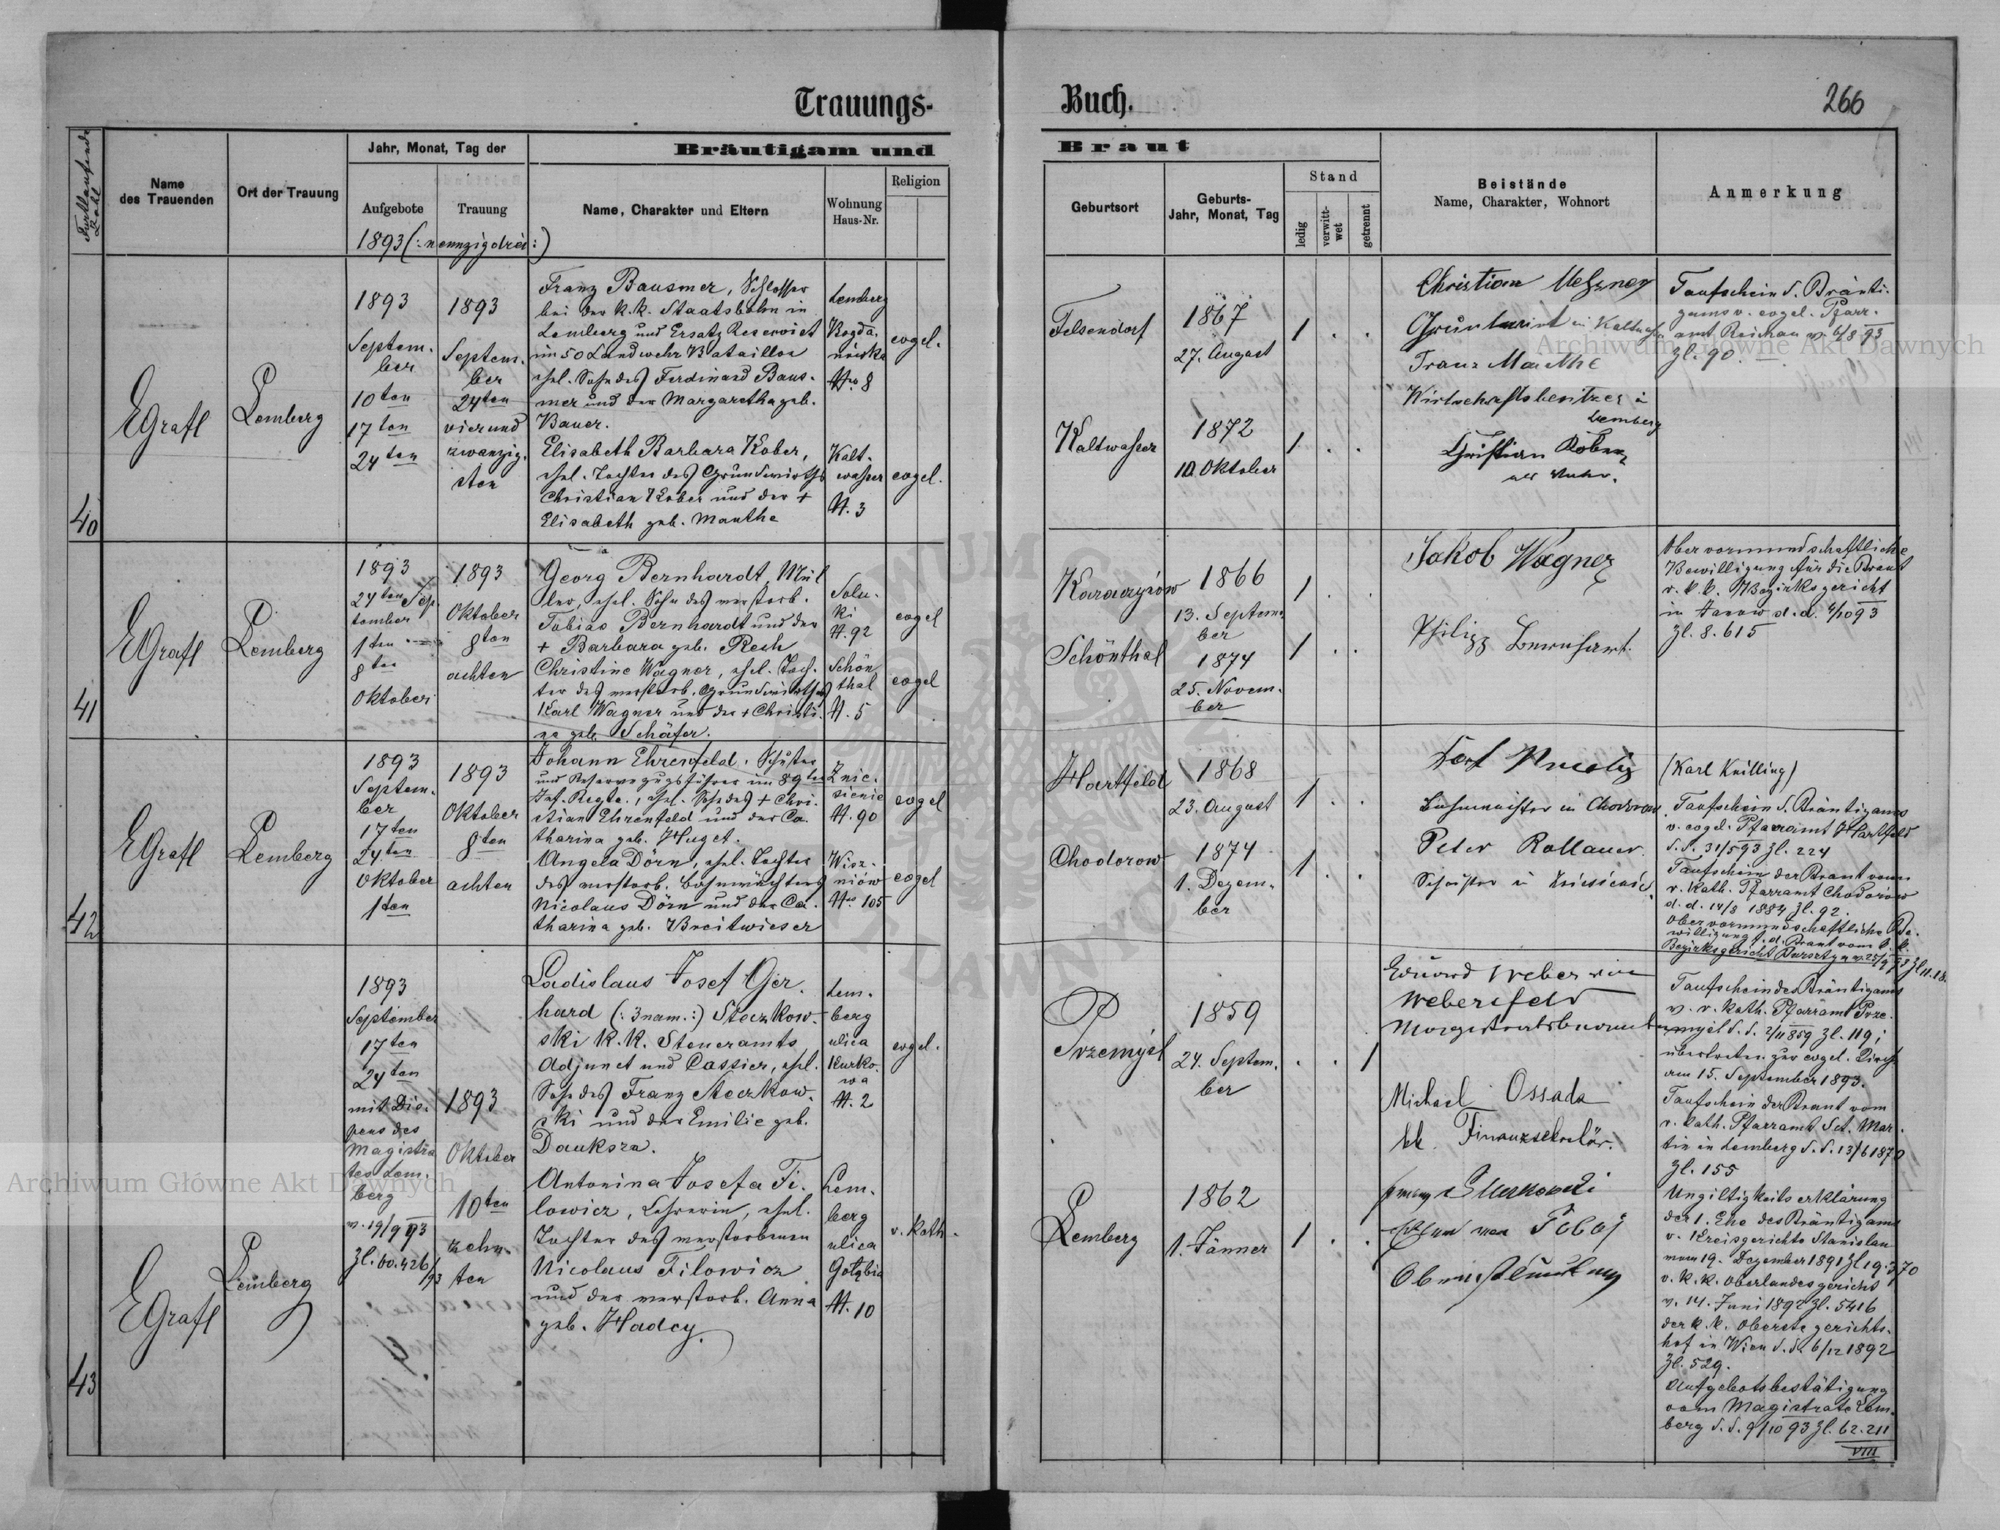 Trauungs-
Buch.
266
Fortlaufende Zahl
Name
des Trauenden
Ort der Trauung
Jahr, Monat, Tag der
Aufgebote
Trauung
Bräutigam und
Name, Charakter und Eltern
Wohnung
Haus-Nr.
Religion
Braut
Geburtsort
Geburts-
Jahr, Monat, Tag
Stand
ledig
verwitt-
wet
getrennt
Beistände
Name, Charakter, Wohnort
Anmerkung
1893 (: neunzigdrei :)
40
EGrafl
Lemberg
1893
Septem-
ber
10ten
17ten
24ten
1893
Septem-
ber
24ten
vierund
zwanzig-
sten
Franz Bausmer, Schlosser
bei der k.k. Staatsbahn in
Lemberg und Ersatz Reservist
im 50 Landwehr Bataillon
ehel. Sohn des Ferdinand Baus-
mer und der Margaretha geb.
Bauer.
Elisabeth Barbara Kober,
ehel. Tochter des Grundwirths
Christian Kober und der +
Elisabeth geb. Manthe
Lemberg
Bogda-
nówka
No 8
Kalt-
wasser
N. 3
evgel.
evgel.
Felsendorf
1867
27. August
1 . .
Kaltwasser
1872
10 Oktober
1 . .
Christian Metzner
Grundwirt in Kaltwasser
Franz Manthe
Wirtschaftsbesitzer in
Lemberg
Christian Kober
als Vater.
Taufschein d. Bräuti-
gams v. evgel. Pfarr-
amt Reichau v. 6/8 93
Zl. 90.
41
EGrafl
Lemberg
1893
24ten Sep
tember
1ten
8ten
Oktober
1893
Oktober
8ten
achten
Georg Bernhardt, Mül
ler, ehel. Sohn des verstorb.
Tobias Bernhardt und der
+ Barbara geb. Resch
Christine Wagner, ehel. Toch-
ter des verstorb. Grundwirthes
Karl Wagner und der + Christi-
ne geb. Schäfer.
Solu-
ki
N. 92
Schön
thal
N. 5
evgel
evgel
1866
13. Septem-
ber
1 . .
Schönthal
1874
25. Novem-
ber
1 . .
Jakob Wagner
Philipp Bernhart.
Obervormundschaftliche
Bewilligung für die Braut
v. k.k. Bezirksgericht
in Janow d.d. 4/10 93
Zl. 8.615
42
EGrafl
Lemberg
1893
Septem-
ber
17ten
24ten
Oktober
1ten
1893
Oktober
8ten
achten
Johann Ehrenfeld, Schuster
und Reservezugsführer im 89ten
Inf. Regte., ehel. Sohn des + Chri-
stian Ehrenfeld und der Ca-
tharina geb. Huget.
Angela Dörn, ehel. Tochter
des verstorb. Bahnwächters
Nicolaus Dörn und der Ca-
tharina geb. Breitwieser
Znie-
sienie
N. 90
Wisz-
niów
No 105
evgel
evgel
Hartfeld
1868
23. August
1 . .
Chodorow
1874
1. Dezem-
ber
1 . .
Bahnmeister in Chodorow
Peter Rollauer
Schuster in Zniesienie
(Karl Knilling)
Taufschein d. Bräutigams
v. evgel. Pfarramt Hartfeld
d.d. 31/5 93 Zl. 224
Taufschein der Braut vom
r. kath. Pfarramt Chodorow
d.d. 14/8 1884 Zl. 92.
Obervormundschaftliche Be-
willigung f. d. Braut vom k.k.
43
EGrafl
Lemberg
1893
September
17ten
24ten
mit Dis-
pens des
Magistra
tes Lem-
berg
v. 19/9 93
Zl. 60.426/93
1893
Oktober
10ten
zehn-
ten
Ladislaus Josef Ger-
hard (: 3 nam. :) Steczkow-
ski K.K. Steueramts
Adjunct und Cassier, ehel.
Sohn des Franz Steczkow-
ski und der Emilie geb.
Dauksza.
Antonina Josefa Fi-
lowicz, Lehrerin, ehel.
Tochter des verstorbenen
Nicolaus Filowicz
und der verstorb. Anna
geb. Hadey.
Lem-
berg
ulica
Kurko-
wa
N. 2
Lem-
berg
ulica
Gołębia
N. 10
evgel.
r. kath.
Przemyśl
1859
24. Septem-
ber
. . 1
Lemberg
1862
1. Jänner
1 . .
Eduard Weber von
Webersfeld
Magistratsbeamter
Michael Ossada
kk. Finanzsekretär
Taufschein des Bräutigams
v. r. kath. Pfarramt Prze-
myśl d.d. 2/11 859 Zl. 119;
übertreten zur evgel. Kirche
am 15. September 1893.
Taufschein der Braut vom
r. kath. Pfarramt Sct. Mar-
tin in Lemberg d.d. 13/6 187
Zl. 155
Ungiltigkeitserklärung
der 1. Ehe des Bräutigams
v. Kreisgerichte Stanislau
vom 19. Dezember 1891 Zl 19.370
v. k.k. Oberlandesgericht
v. 14. Juni 1892 Zl. 5416
der k.k. Oberste gerichts-
hof in Wien d.d. 6/12 1892
Zl. 529.
Aufgebotsbestätigung
vom Magistrate Lem-
berg d.d. 9/10 93 Zl. 62.211
VIII
Archiwum Główne Akt Dawnych
Archiwum Główne Akt Dawnych